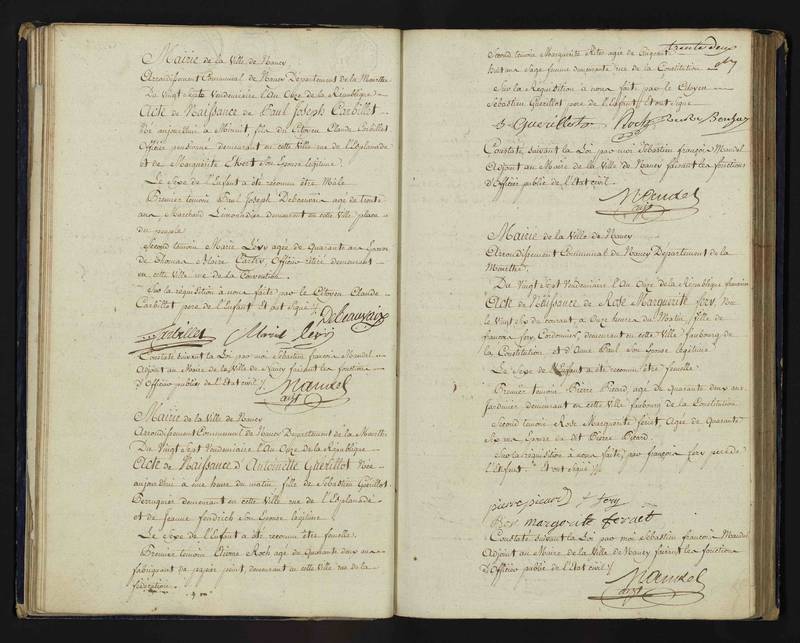 Mairie de la Ville de Nancy
Arrondissement Communal de Nancy Departement de la Meurthe
Du Vingt Sept Vendemiaire l'An Onze de la République
Acte de Naissance de Paul Joseph Carbillet
Né aujourdhui à Minuit, fils du Citoyen Claude Carbillet
Officier pensionné demeurant en cette Ville rue de l'Esplanade
et de Marguerite Son Epouse légitime.
Le Sexe de l'Enfant a été reconnu être Mâle
Premier temoin Paul Joseph Debeauvaix agé de trente
ans Marchand Limonadier demeurant en cette Ville place
du peuple
Second temoin Marie Lévy agée de Quarante ans Epouse
de Thomas Officier retiré demeurant
en cette Ville rue de la Convention.
Sur la réquisition à nous faite par le Citoyen Claude
Carbillet pere de l'Enfant Et ont Signé
Debeauvaix
Carbillet Marie Lévy
Constaté suivant la Loi par moi Sébastien françois Mandel
Adjoint au Maire de la Ville de Nancy faisant les fonctions
d'Officier public de l'Etat civil
Mandel
adjt
Mairie de la Ville de Nancy
Arrondissement Communal de Nancy Departement de la Meurthe
Du Vingt Sept Vendemiaire l'An Onze de la République
Acte de Naissance d'Antoinette Guerillot Née
aujourdhui à une heure du matin fille de Sébastien Guerillot
Perruquier demeurant en cette Ville rue de l'Esplanade
et de Jeanne fendrich Son Epouse légitime
Le Sexe de l'Enfant a été reconnu être femelle.
Premier temoin Etienne Roch agé de Quarante deux ans
fabriquant de papier peint, demeurant en cette Ville rue de la
fédération.
trente deux
Second temoin Marguerite agée de Cinquante
huit ans Sage femme demeurante rue de la Constitution
Sur la Réquisition à nous faite par le Citoyen
Sébastien Guerillot pere de l'Enfant Et ont Signé
S Guerillot Roch
Constaté, suivant la Loi par moi Sébastien françois Mandel
Adjoint au Maire de la Ville de Nancy faisant les fonctions
d'Officier public de l'Etat civil
Mandel
adjt
Mairie de la Ville de Nancy
Arrondissement Communal de Nancy Departement de la
Meurthe
Du Vingt Sept Vendemiaire l'An Onze de la République française
Acte de Naissance de Rose Marguerite fery, Née
le Vingt Six du courant, à Onze heures du Matin fille de
françois fery Cordonnier, demeurant en cette Ville faubourg de
la Constitution et d'Anne Paul Son Epouse légitime
Le Sexe de l'Enfant a été reconnu être femelle
Premier temoin Pierre Picard, agé de Quarante deux ans
Jardinier demeurant en cette Ville faubourg de la Constitution
Second temoin Rose Marguerite feriet, Agée de Quarante
Six ans Epouse de dit Pierre Picard.
Sur la réquisition à nous faite par françois fery pere de
l'Enfant. Et ont Signé
pierre picard f fery
Ros margorite feraet
Constaté suivant la Loi par moi Sébastien françois Mandel
Adjoint au Maire de la Ville de Nancy faisant les fonctions
D'Officier public de l'Etat civil
Mandel
adjt